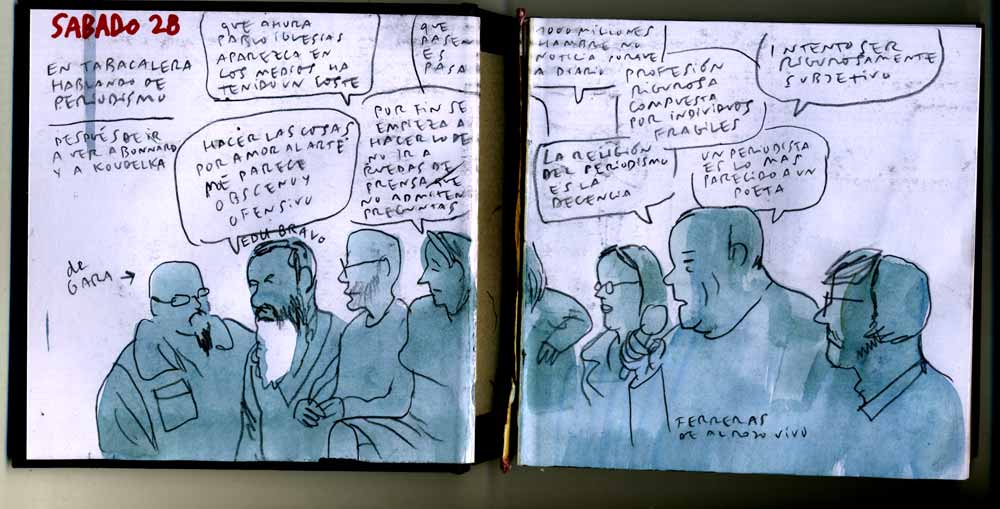 SABADO 28
EN TABACALERA
HABLANDO DE
PERIODISMO
DESPUÉS DE IR
A VER A BONNARD
Y A KOUDELKA
QUE AHORA
PABLO IGLESIAS
APAREZCA EN
LOS MEDIOS HA
TENIDO UN COSTE
QUE
PASEN
ES
PASA
HACER LAS COSAS
POR AMOR AL ARTE
ME PARECE
OBSCENO Y
OFENSIVO
EDU BRAVO
POR FIN SE
EMPIEZA A
HACER LO DE
NO IR A
RUEDAS DE
PRENSA QUE
NO ADMITEN
PREGUNTAS
de
GARA
1000 MILLONES
HAMBRE NO
NOTICIA PORQUE
A DIARIO
PROFESIÓN
RIGUROSA
COMPUESTA
POR INDIVIDUOS
FRAGILES
INTENTO SER
RIGUROSAMENTE
SUBJETIVO
LA RELIGIÓN
DEL PERIODISMO
ES LA
DECENCIA
UN PERIODISTA
ES LO MAS
PARECIDO A UN
POETA
FERRERAS
DE AL ROJO VIVO